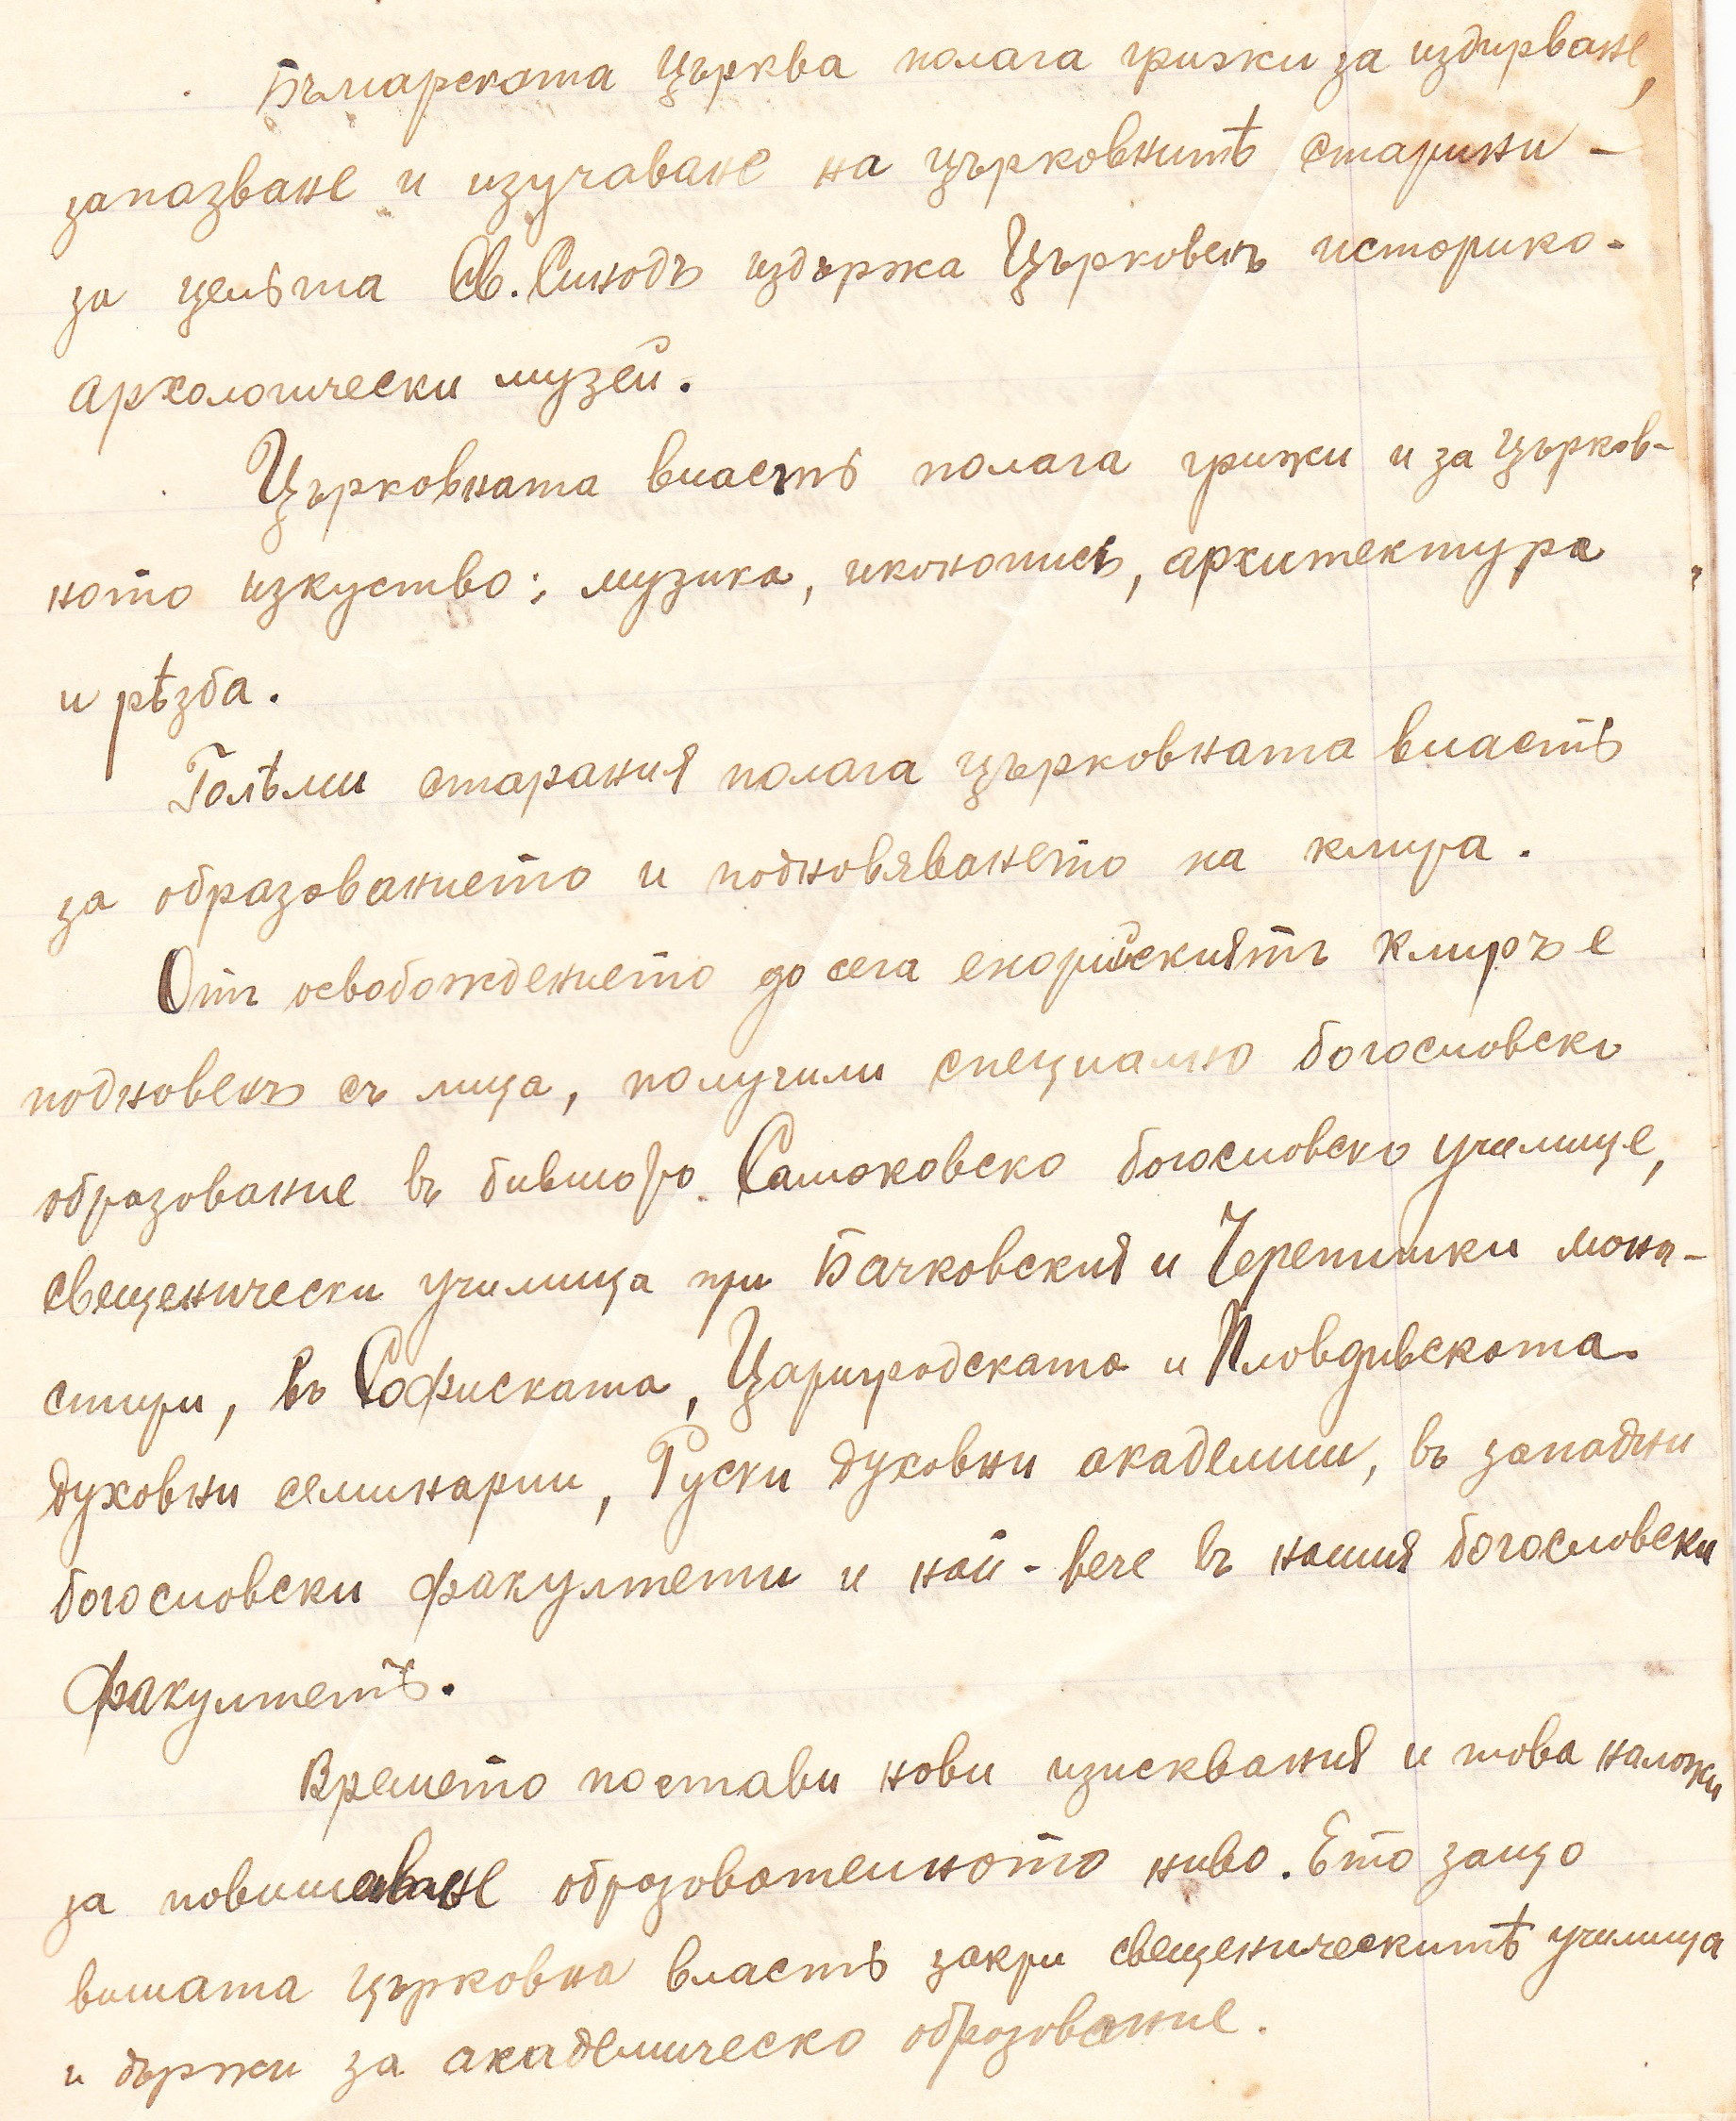 Българската Църква полага грижи за издирване,
запазване и изучаване на църковнитѣ старини –
за цельта Св. Синодъ издържа Църковенъ историко-
археологически музей.
Църковната власть полага грижи и за църков-
ното изкуство: музика, иконопись, архитектура
и рѣзба.
Голѣми старания полага църковната власть
за образованието и подновяването на клира.
Отъ освобождението до сега енорийскиятъ клиръ е
подновенъ съ лица, получили специално богословско
образование въ бившото Самоковско богословско училище,
свещенически училища при Бачковския и Черепишки мона-
стири, въ Софиската, Цариградската и Пловдивската
духовни семинарии, Руски духовни академии, въ западни
богословски факултети и най-вече въ нашия богословски
факултетъ.
Времето постави нови изисквания и това наложи
за повишаване образователното ниво. Ето защо
вишата църковна власть закри свещеническитѣ училища
и държи за академическо образование.